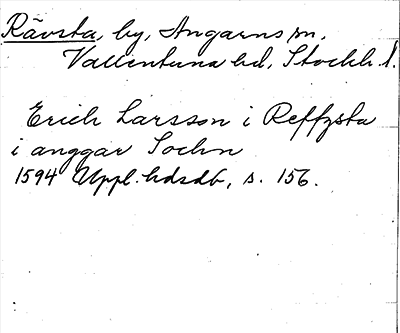 Rävsta, by, Angarns sn.
Vallentuna hd, Stockh. l.
Erich Larsson i Reffzsta
i anggar Sochn
1594 Uppl. hdsdb, s. 156.